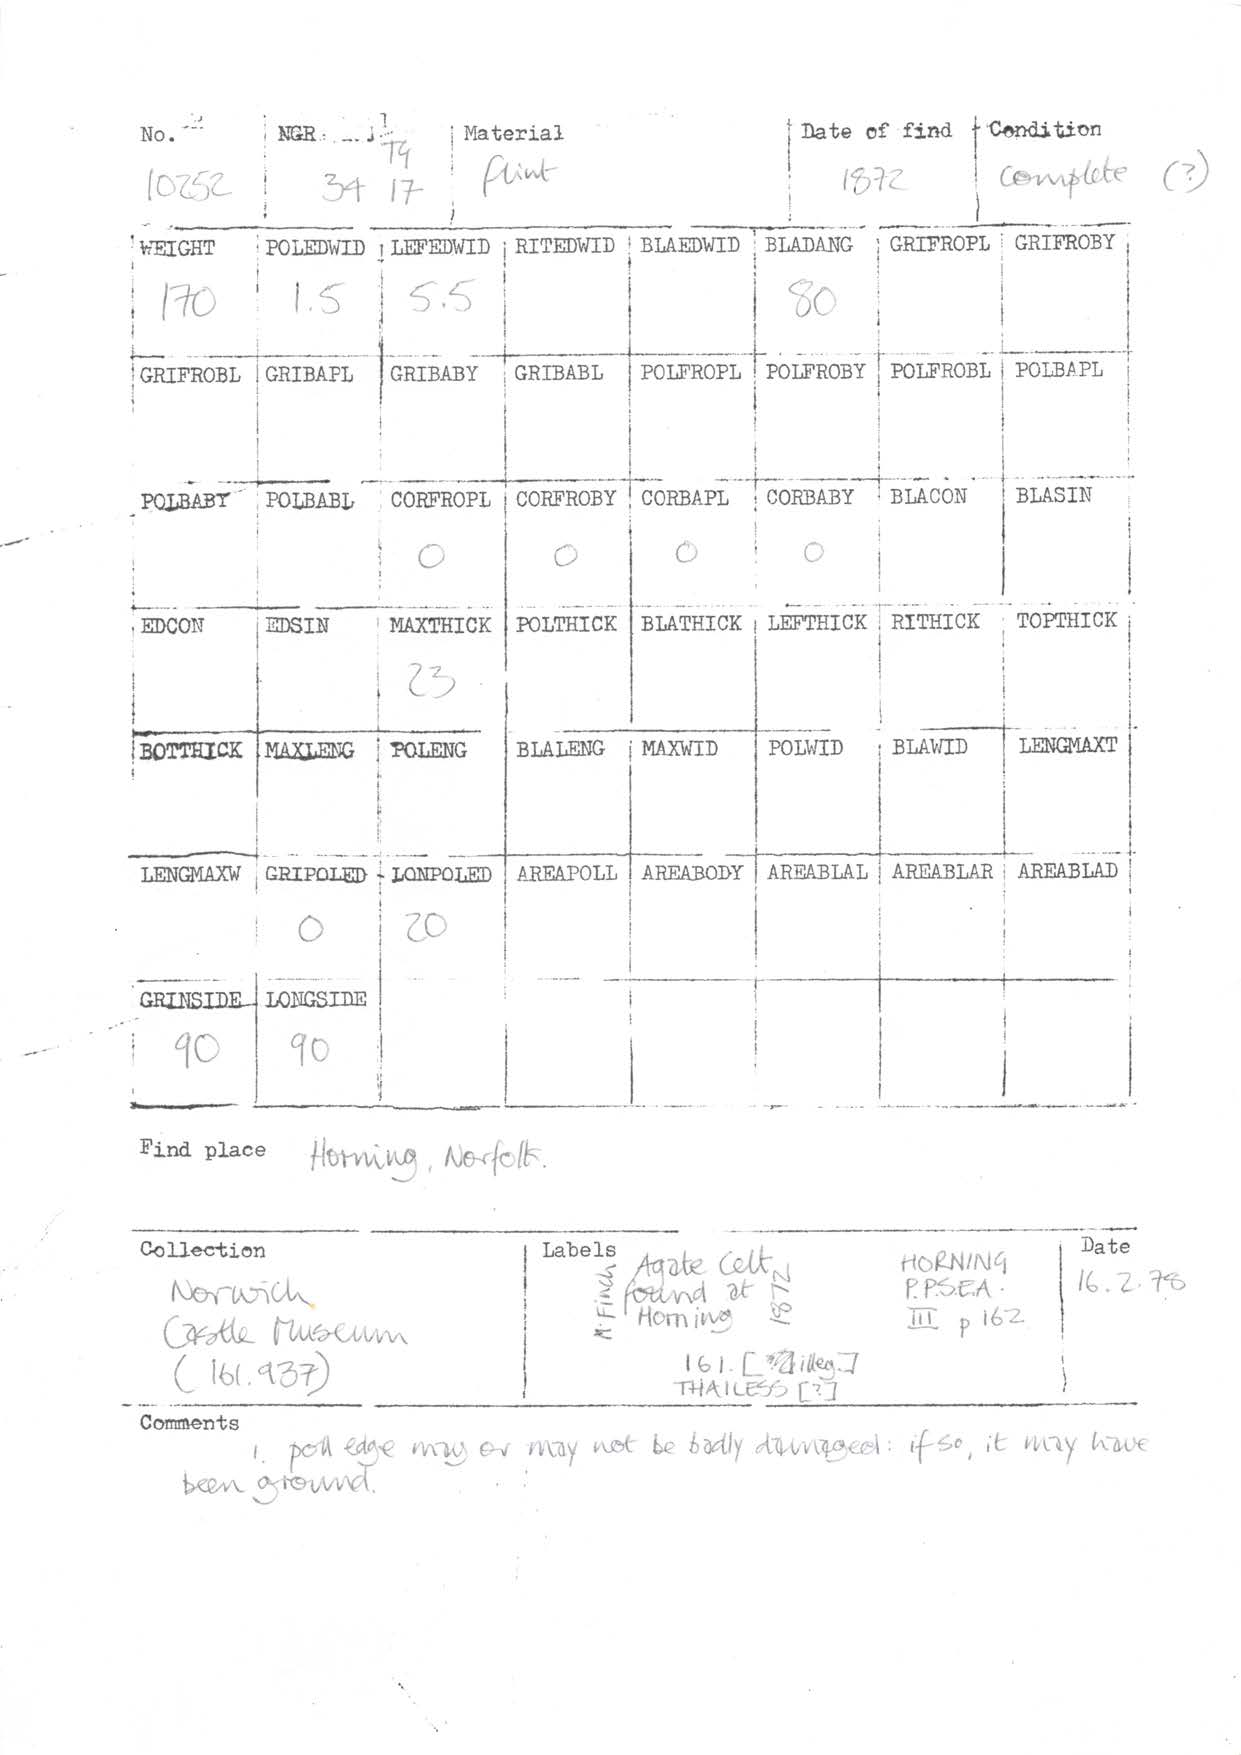 No. NGR Material Date of find Condition
TG
10252 34 17 flint 1872 complete (?)
WEIGHT POLEDWID LEFEDWID RITEDWID BLAEDWID BLADANG GRIFROPL GRIFROBY
170 1.5 5.5 80
GRIFROBL GRIBAPL GRIBABY GRIBABL POLFROPL POLFROBY POLFROBL POLBAPL
POLBABY POLBABL CORFROPL CORFROBY CORBAPL CORBABY BLACON BLASIN
0 0 0 0
EDCON EDSIN MAXTHICK POLTHICK BLATHICK LEFTHICK RITHICK TOPTHICK
23
BOTTHICK MAXLENG POLENG BLALENG MAXWID POLWID BLAWID LENGMAXT
LENGMAXW GRIPOLED LONPOLED AREAPOLL AREABODY AREABLAL AREABLAR AREABLAD
0 20
GRINSIDE LONGSIDE
90 90
Find place Horning, Norfolk.
Collection Labels Date
Norwich
Castle Museum
(161.937)
M. Finch
Agate Celt
found at
Horning
1872
HORNING
P.P.S.E.A.
III p 162
161. [illeg.]
THAILESS [?]
16.2.78
Comments
1. poll edge may or may not be badly damaged: if so, it may have
been ground.